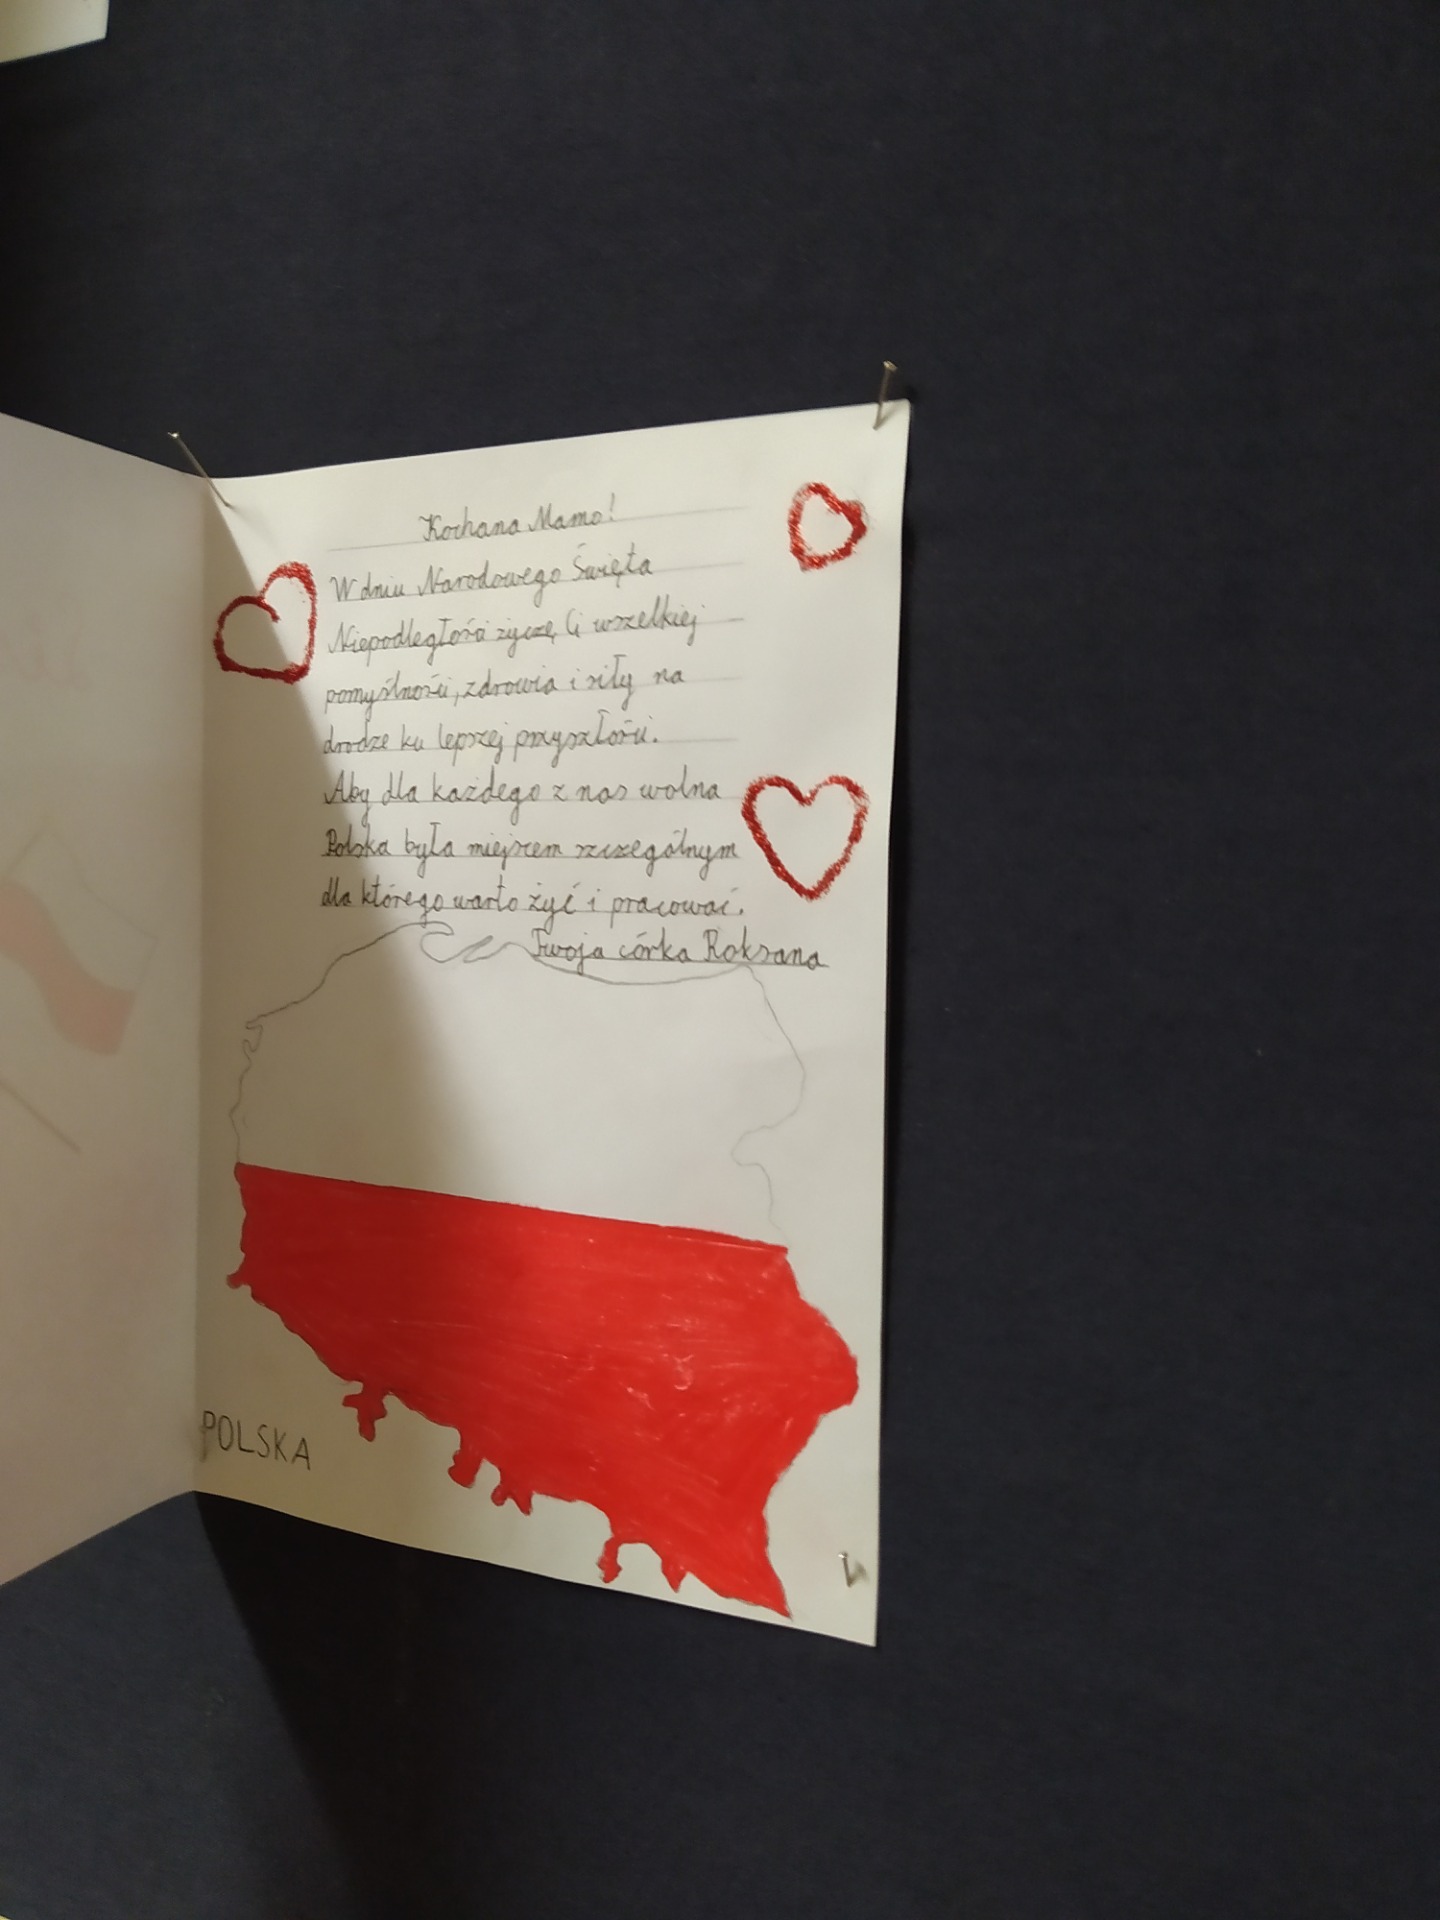 Kochana Mamo!
W dniu Narodowego Święta
Niepodległości życzę Ci wszelkiej
pomyślności, zdrowia i siły na
drodze ku lepszej przyszłości.
Aby dla każdego z nas wolna
Polska była miejscem szczególnym
dla którego warto żyć i pracować.
Twoja córka Roksana
POLSKA